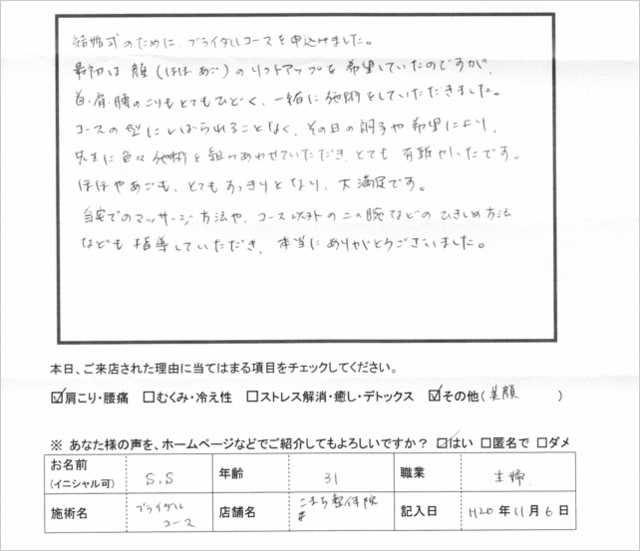 結婚式のために、ブライダルコースを申込みました。
最初は顔(ほほ・あご)のリフトアップを希望していたのですが、
首・肩・腰のこりもとてもひどく、一緒に施術をしていただきました。
コースの型にしばられることなく、その日の調子や希望により、
先生に色々施術を組みあわせていただき、とても有難かったです。
ほほやあごも、とてもすっきりとなり、大満足です。
自宅でのマッサージ方法や、コース以外の二の腕などのひきしめ方法
なども指導していただき、本当にありがとうございました。
本日、ご来店された理由に当てはまる項目をチェックしてください。
☑肩こり・腰痛 □むくみ・冷え性 □ストレス解消・癒し・デトックス ☑その他(美顔 )
※ あなた様の声を、ホームページなどでご紹介してもよろしいですか? ☑はい □匿名で □ダメ
お名前 (イニシャル可) S.S 年齢 31 職業 主婦
施術名 ブライダルコース 店舗名 こまち整体院 記入日 H20年11月6日